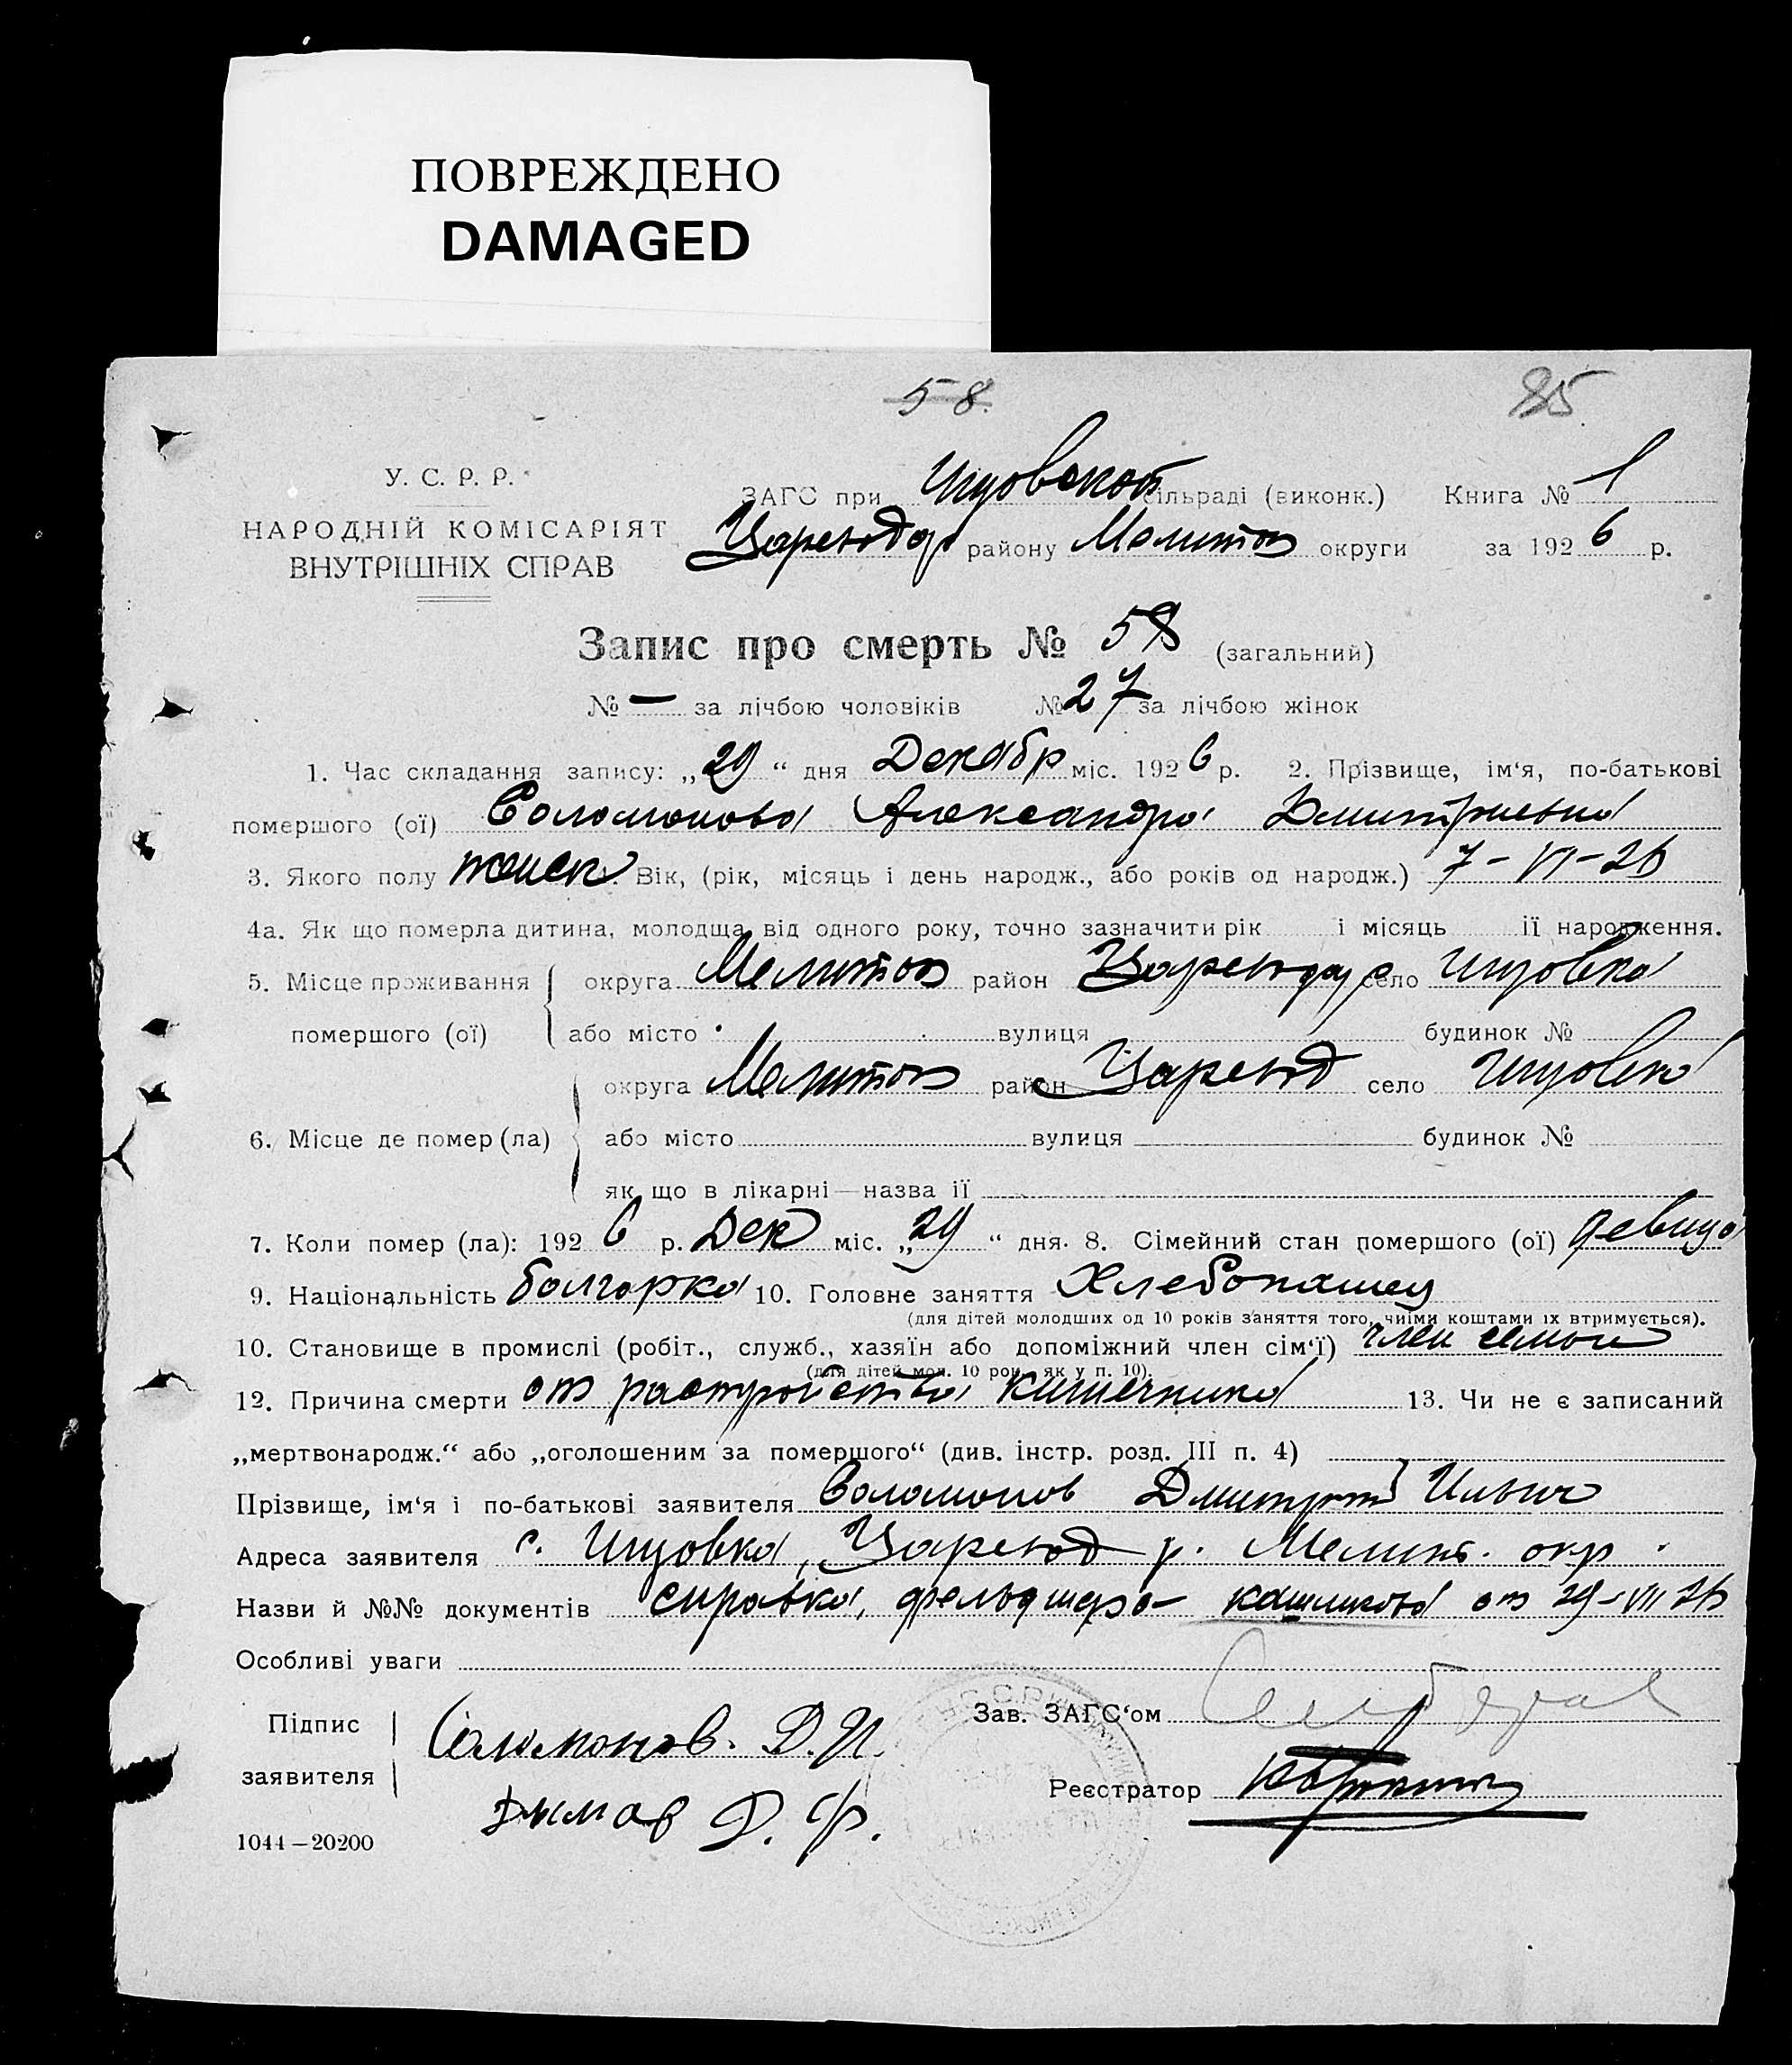 ПОВРЕЖДЕНО
DAMAGED
58. 85
У. С. Р. Р.
НАРОДНІЙ КОМІСАРІЯТ
ВНУТРІШНІХ СПРАВ
ЗАГС при сільраді (виконк.) Книга № 1
району Мелитоп округи за 1926 р.
Запис про смерть № 58 (загальний)
№ — за лічбою чоловіків № 27 за лічбою жінок
1. Час складання запису: „29“ дня Декабр міс. 1926 р. 2. Прізвище, ім‘я, по-батькові
помершого (ої) Соломонова Александра Дмитриевна
3. Якого полу женск. Вік, (рік, місяць і день народж., або років од народж.) 7-VI-26
4а. Як що померла дитина, молодща від одного року, точно зазначити рік і місяць її народження.
5. Місце проживання округа Мелитоп район село
помершого (ої) або місто вулиця будинок №
округа Мелитоп район село
6. Місце де помер (ла) або місто вулиця будинок №
як що в лікарні—назва її
7. Коли помер (ла): 1926 р. Дек міс. „29“ дня. 8. Сімейний стан помершого (ої) девица
9. Національність болгарка 10. Головне заняття Хлебопашец
(для дітей молодших од 10 років заняття того, чиїми коштами їх втримується).
10. Становище в промислі (робіт., служб., хазяїн або допоміжний член сім‘ї) член семьи
(для дітей мол. 10 рок. як у п. 10).
12. Причина смерти от растройства кишечника 13. Чи не є записаний
„мертвонародж.“ або „оголошеним за помершого“ (див. інстр. розд. III п. 4)
Прізвище, ім‘я і по-батькові заявителя Соломонов Дмитрий Ильич
Адреса заявителя с. р. Мелит. окр.
Назви й №№ документів справка, фельдшера от 29-
Особливі уваги
Підпис Соломонов. Д.И. Зав. ЗАГС‘ом
заявителя Димов Д. Ф. Реєстратор
1044—20200